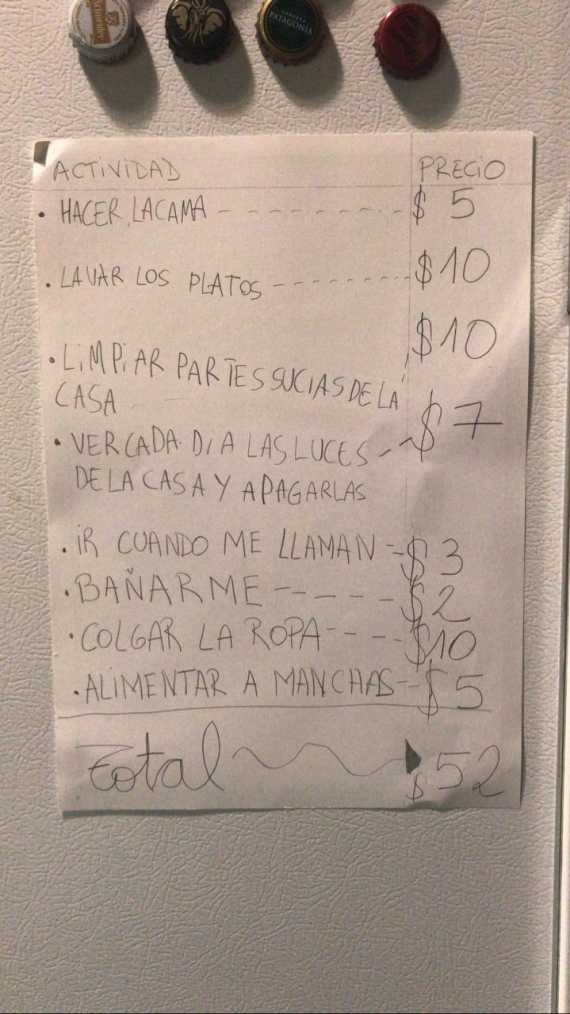 PATAGONIA
ACTIVIDAD PRECIO
• HACER LA CAMA - - - - - - - $ 5
• LAVAR LOS PLATOS - - - - - - - $10
• LIMPIAR PARTES SUCIAS DE LA $10
CASA
• VER CADA DIA LAS LUCES - - $7
DE LA CASA Y APAGARLAS
• IR CUANDO ME LLAMAN - - $3
• BAÑARME - - - - - - $2
• COLGAR LA ROPA - - - - $10
• ALIMENTAR A MANCHAS - - $5
Total $52